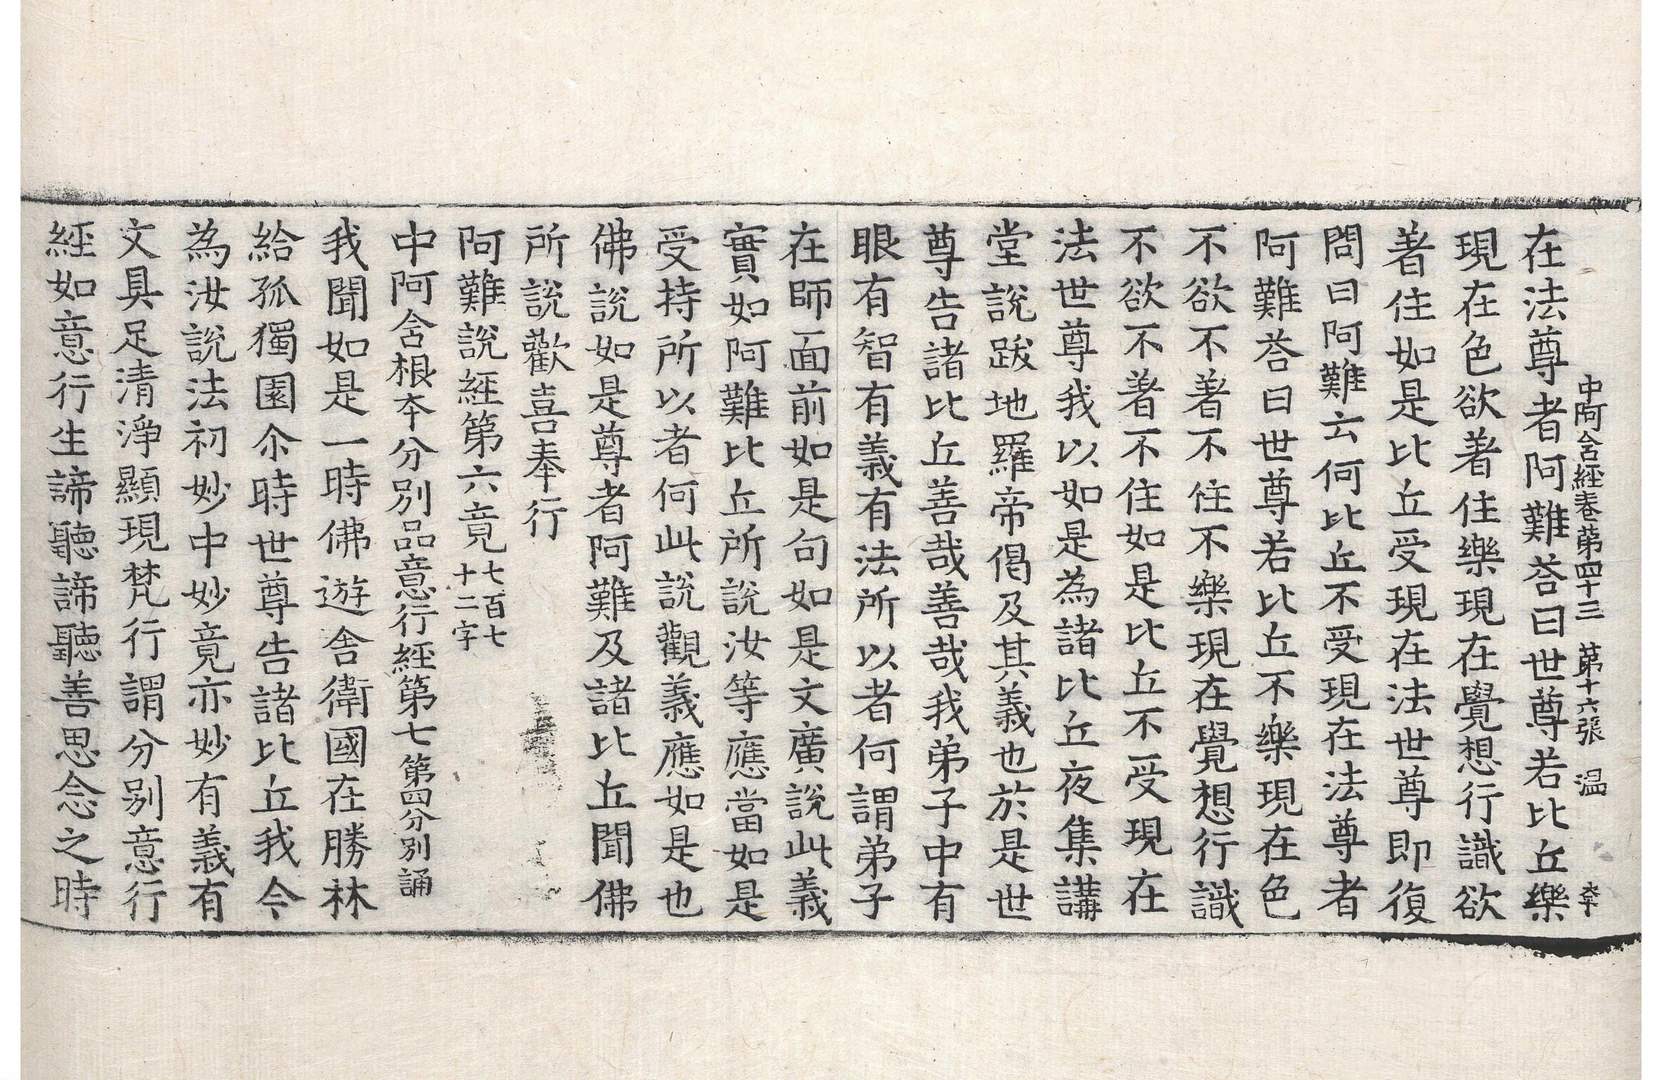 中阿含經卷第四十三　第十六張　温
在法尊者阿難荅曰世尊若比丘樂
現在色欲著住樂現在覺想行識欲
著住如是比丘受現在法世尊即復
問曰阿難云何比丘不受現在法尊者
阿難荅曰世尊若比丘不樂現在色
不欲不著不住不樂現在覺想行識
不欲不著不住如是比丘不受現在
法世尊我以如是為諸比丘夜集講
堂說跋地羅帝偈及其義也於是世
尊告諸比丘善哉善哉我弟子中有
眼有智有義有法所以者何謂弟子
在師面前如是句如是文廣說此義
實如阿難比丘所說汝等應當如是
受持所以者何此說觀義應如是也
佛說如是尊者阿難及諸比丘聞佛
所說歡喜奉行
阿難說經第六竟七百七十二字
中阿含根夲分別品意行經第七第四分別誦
我聞如是一時佛遊舍衛國在勝林
給孤獨園尒時世尊告諸比丘我今
為汝說法初妙中妙竟亦妙有義有
文具足清淨顯現梵行謂分別意行
經如意行生諦聽諦聽善思念之時